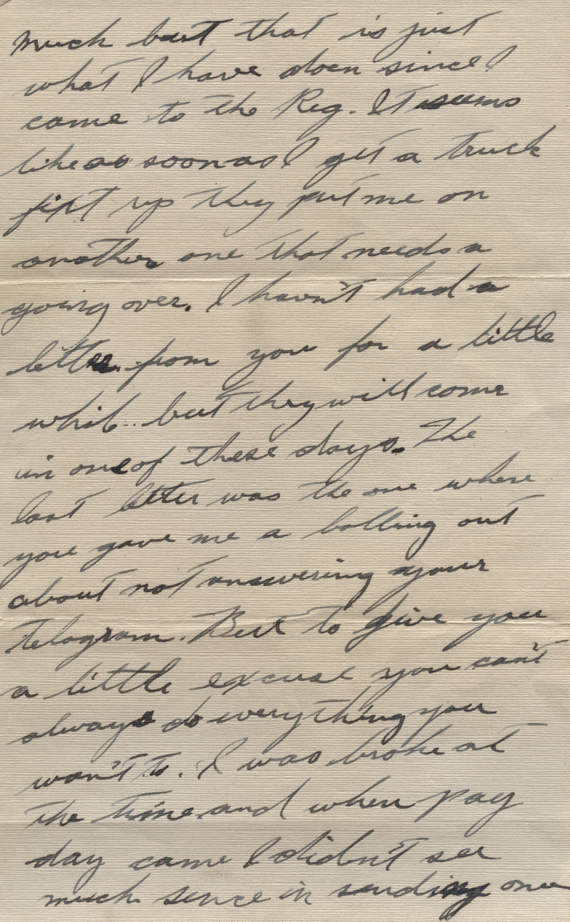 much but that is just
what I have doen since I
came to the Reg. It seems
like as soon as I get a truck
fixt up they put me on
another one that needs a
going over. I havn't had a
letter from you for a little
whil.. but they will come
in one of these days. The
last letter was the one where
you gave me a balling out
about not answering your
telagram. But to give you
a little excuse you can't
always do everything you
wan't to. I was broke at
the time and when pay
day came I didn't see
much sence in sending one